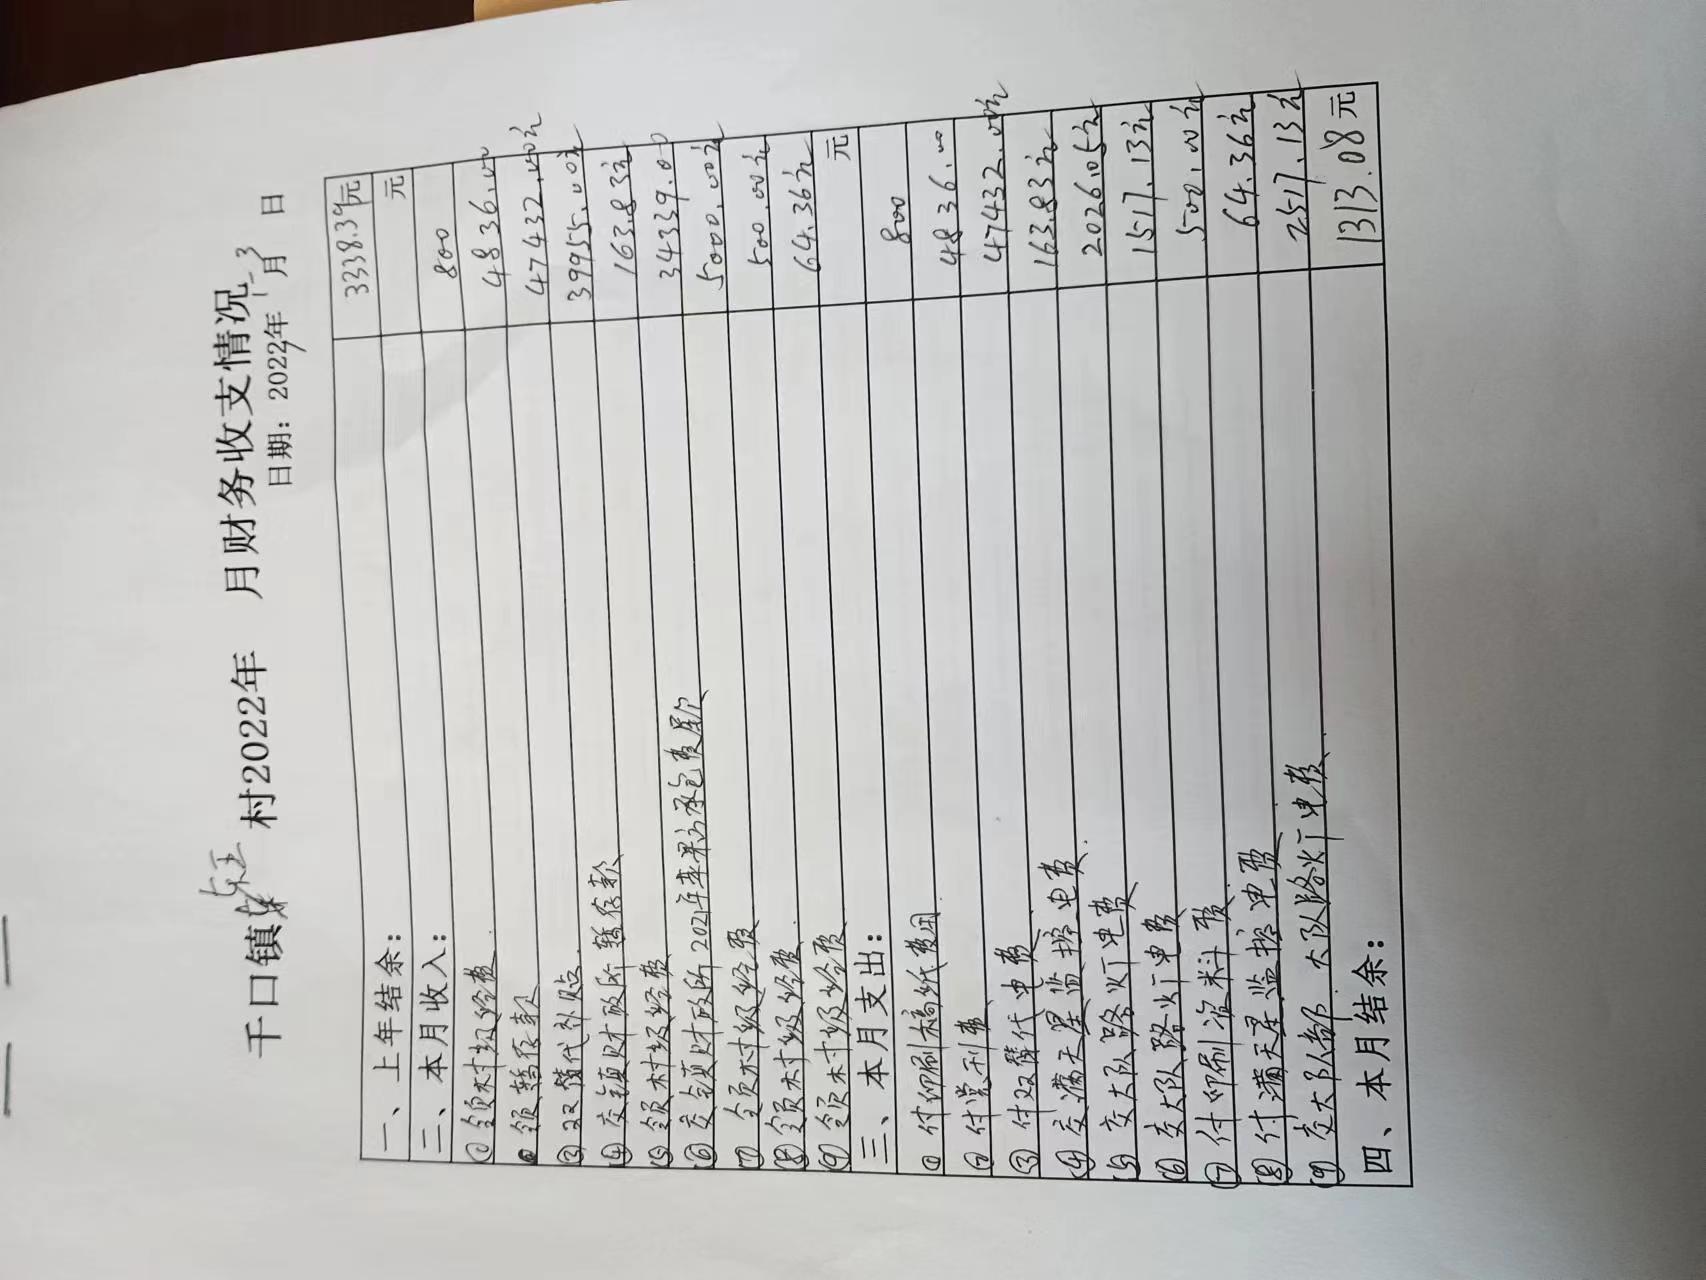 千口镇 村2022年 月财务收支情况
日期：2022年1-3月 日
一、上年结余： 3338.34元
二、本月收入： 元
① 领村级经费. 800
领转存款 4836.00
③ 双替代补贴. 47432.00元
④ 交镇财政所转存款 39955.00元
⑤ 领村级经费 163.83元
⑥ 交镇财政所2021年 承包费 34339.00
⑦ 领村级经费 5000.00元
⑧ 领村级经费. 500.00元
⑨ 领村级经费 64.36元
三、本月支出： 元
① 付印刷稿纸费用 800
② 付党刊费 4836.00
③ 付双替代电费 47432.00元
④ 交满天星监控电费. 163.83元
⑤ 交大队路灯电费 2026.05元
⑥ 交大队路灯电费 1517.13元
⑦ 付印刷资料费 500.00元
⑧ 付满天星监控电费 64.36元
⑨ 交大队部 大队路灯电费. 2517.13元
四、本月结余： 1313.08元